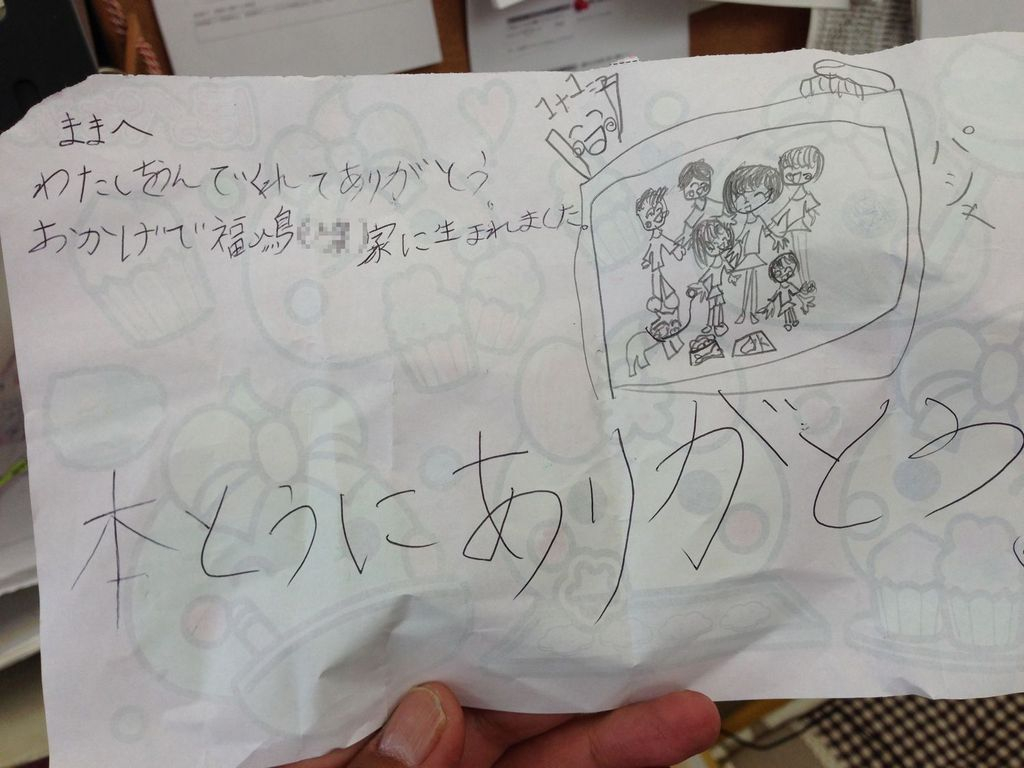 ままへ
わたしをうんでくれてありがとう
おかげで福嶋( )家に生まれました。
1+1=
パシャ
本とうにありがとう